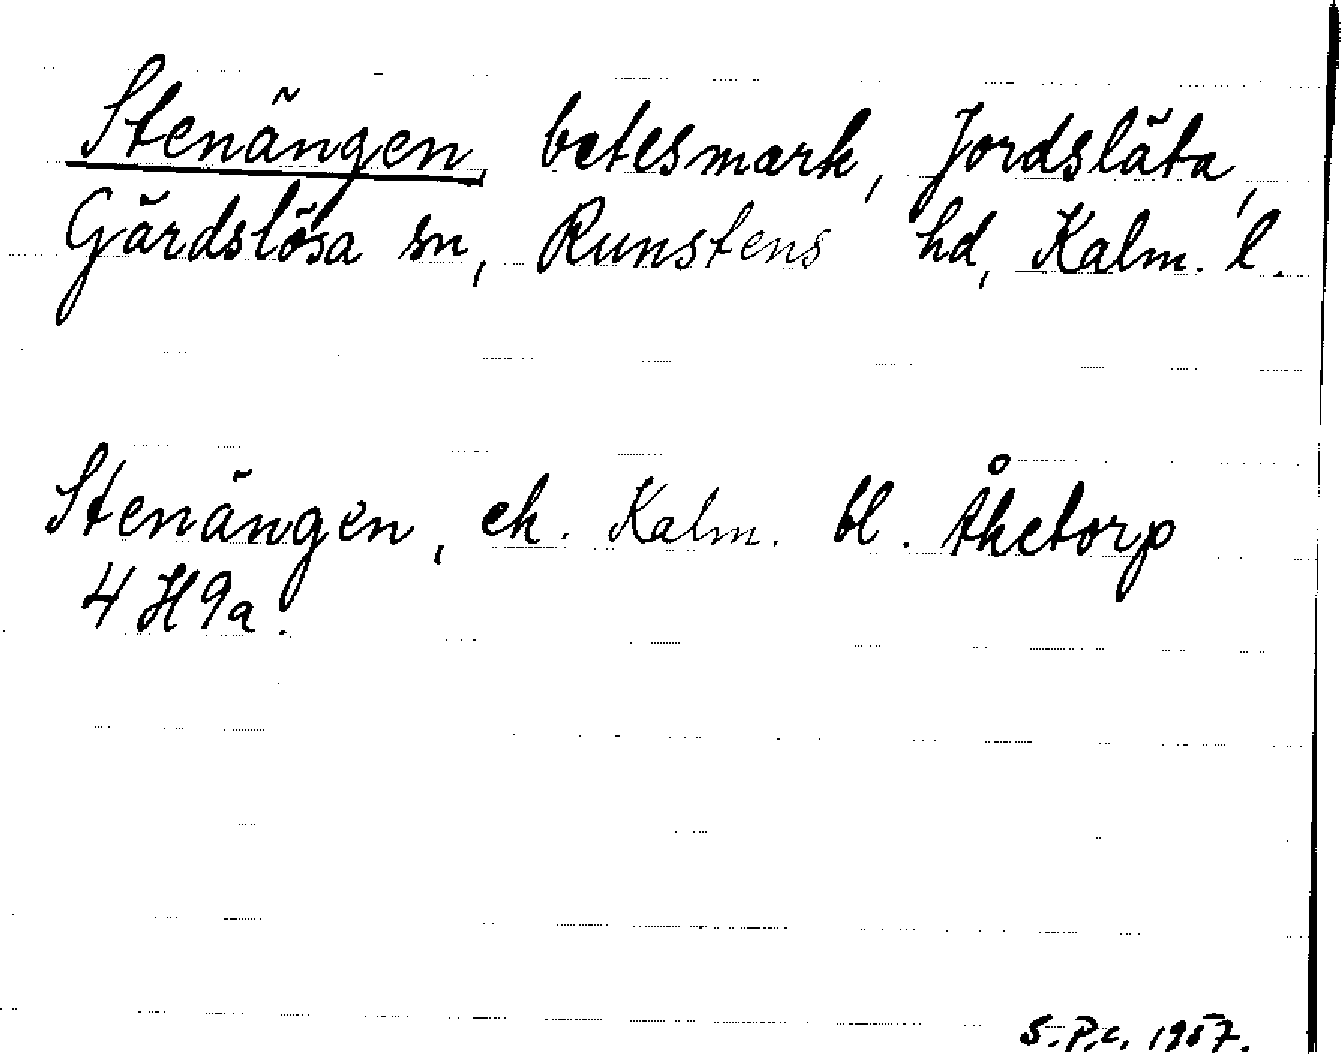 Stenängen, betesmark, Jordsläta,
Gärdslösa sn, Runstens hd, Kalm. l.
Stenängen, ek. Kalm. bl. Åketorp
4 H 9a.
S.P.C. 1957.